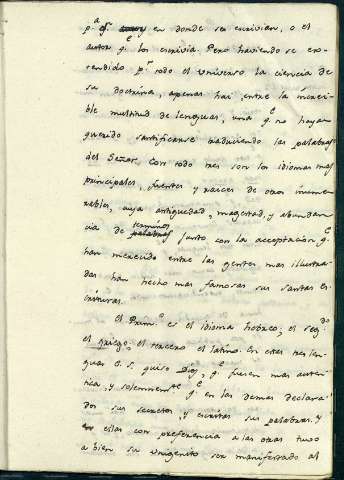 p.ª q.e en donde se escrivian, o el
autor q.e los escrivia. Pero haviendo se ex-
tendido p.r todo el universo la ciencia de
su doctrina, apenas hai entre la increi-
ble multitud de lenguas, una q.e no hayan
querido santificarse traduciendo las palabras
del Señor. Con todo tres son los idiomas mas
principales, fuentes y raices de otros innume-
rables, cuya antiguedad, magestad, y abundan-
cia de terminos
palabras junto con la acceptacion q.e
han merecido entre las gentes mas ilustra-
das han hecho mas famosas sus santas es-
crituras.
El Prim.o es el idioma hebreo, el seg.do
el griego, el tercero el latino. En estas tres len-
guas quiso Dios, q.e fuesen mas auten-
tica, y solemnem.te q.e en las demas declara-
dos sus secretos, y escritas sus palabras. Y
en ellas con preferencia a las otras tuvo
a bien su unigenito ser manifestado al